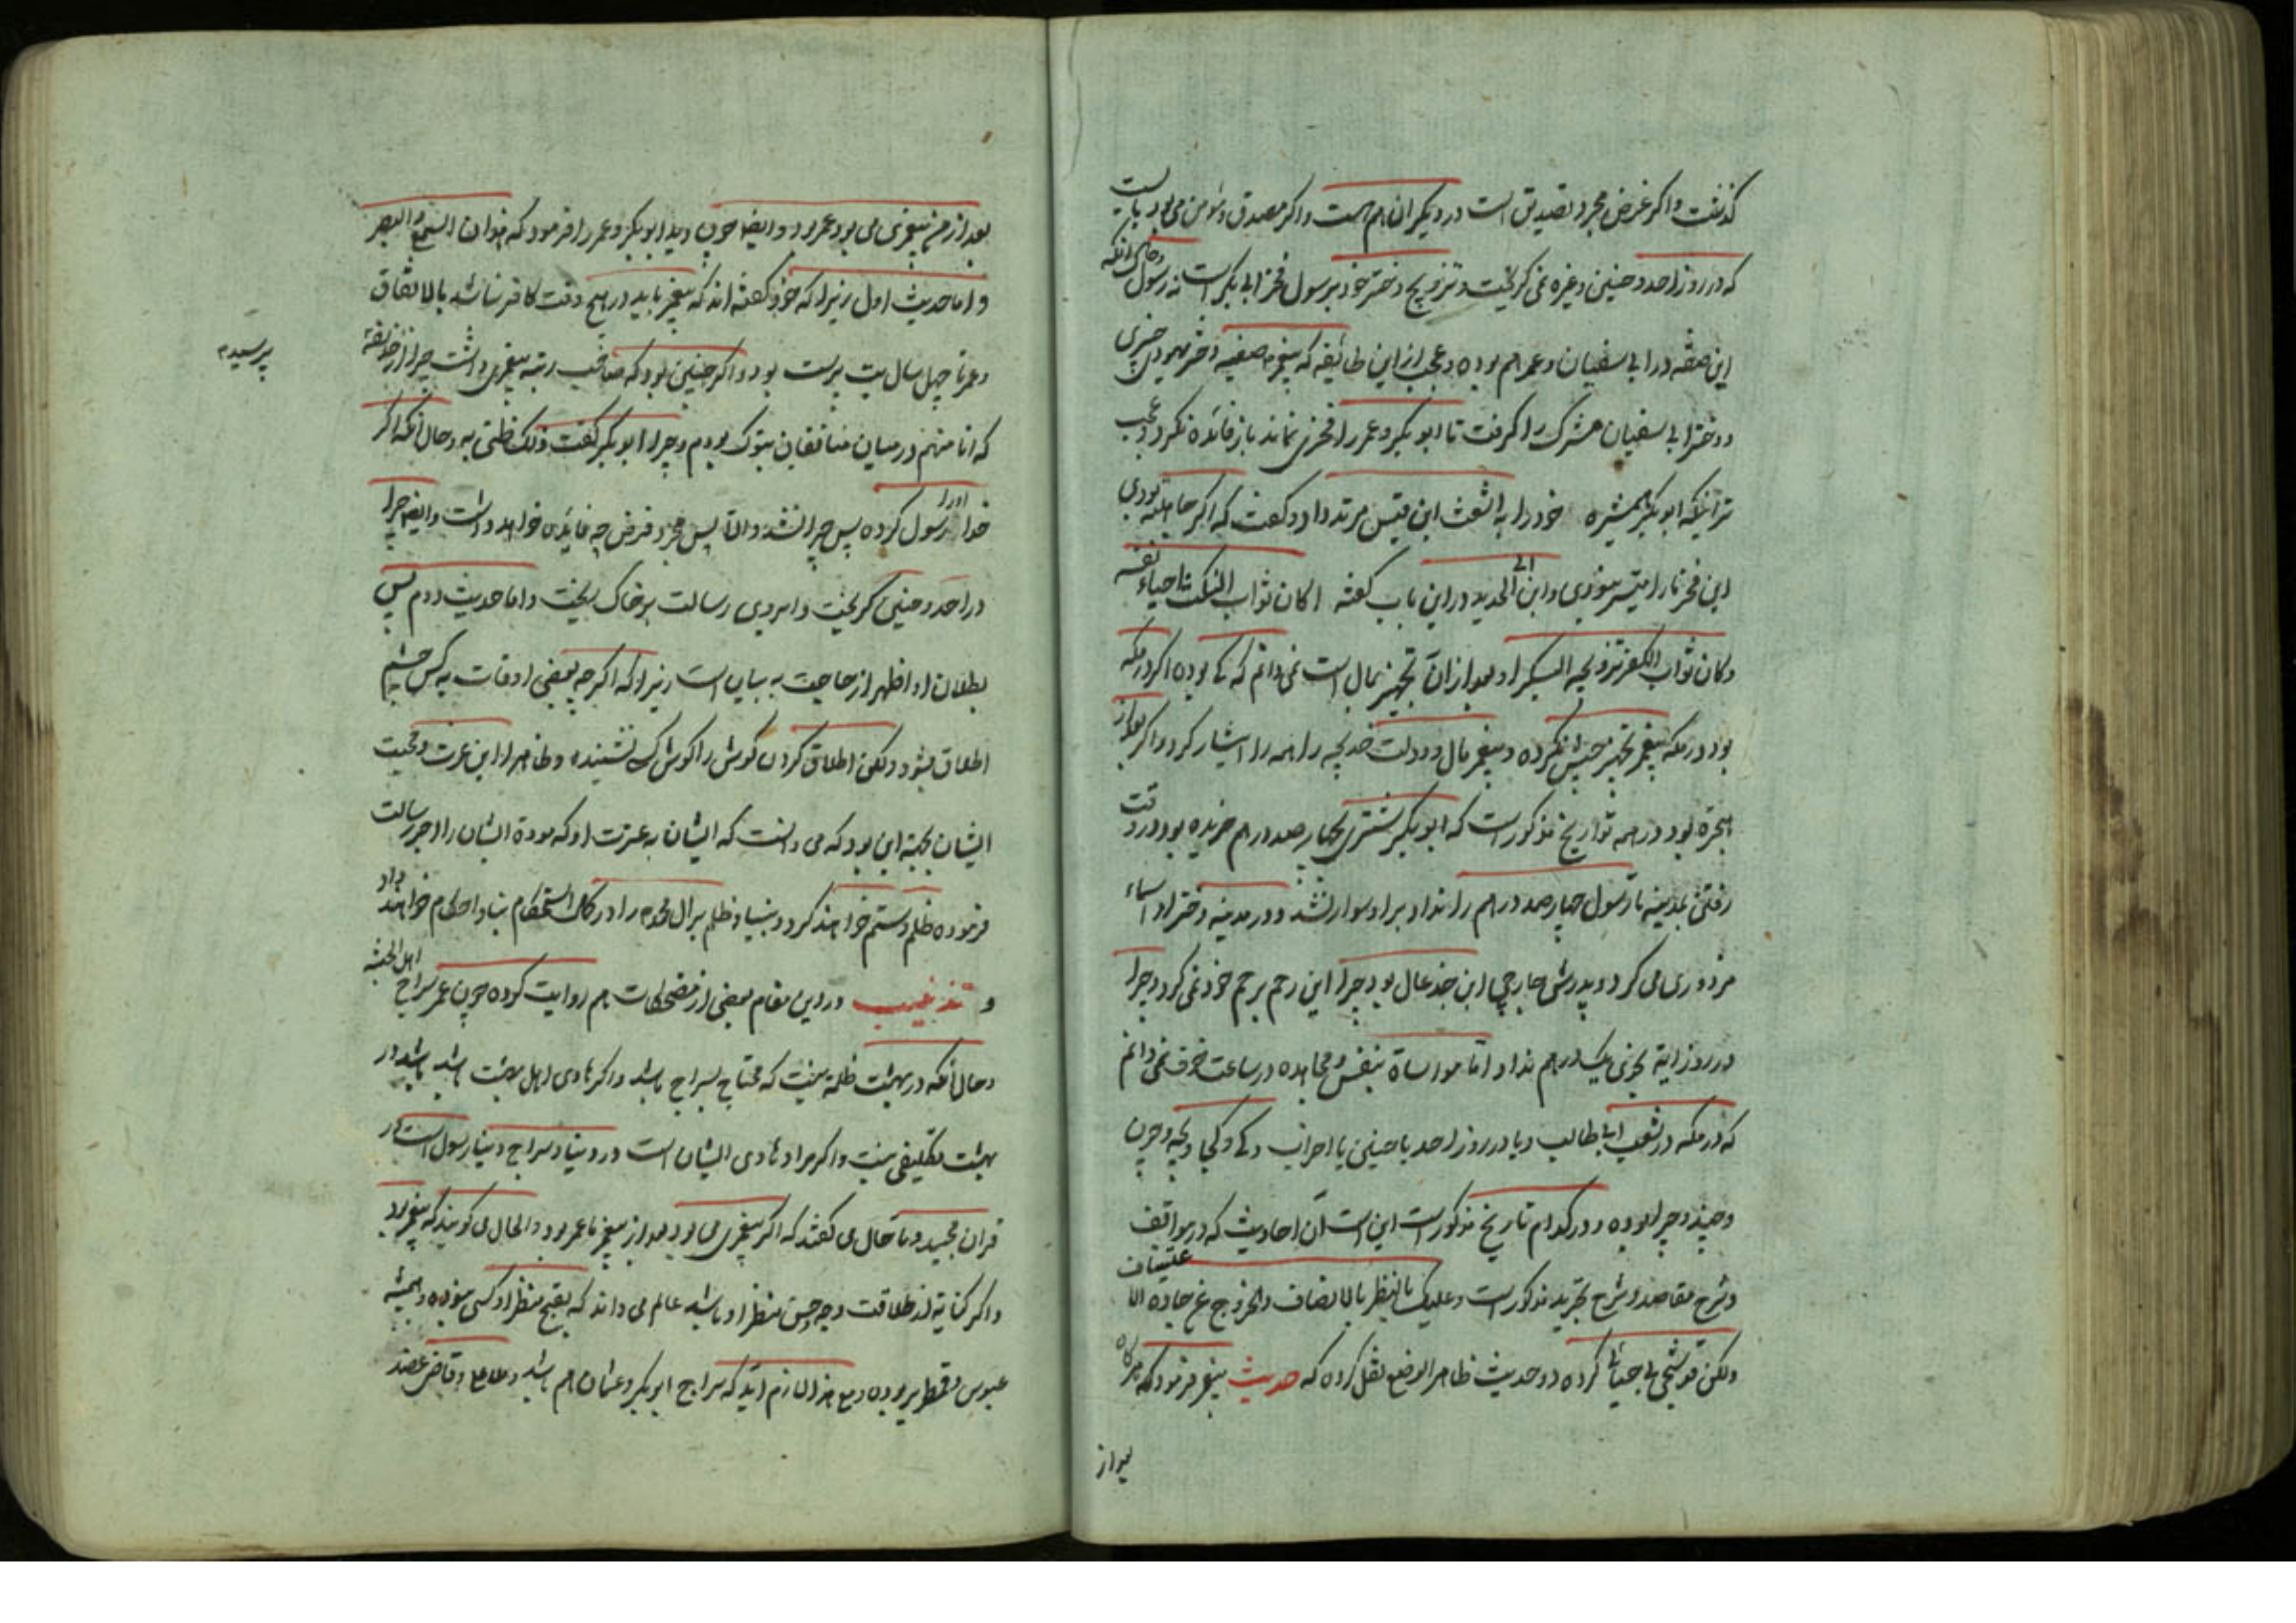 گذشت و اگر غرض مجرد تصدیق است در دیگران هم هست و اگر مصدق و مؤمن می بود بایست
که در روز احد و حنین و غیره نمی گریخت و تزویج دختر خود برسول فخر ابی بکر است نه رسول و حال آنکه
این صفة در ابی سفیان و عمر هم بوده و عجب از این طائفه که پیغمبر صفیه دختر یهودی خیبری
و دختر ابی سفیان مشرک را گرفت تا ابو بکر و عمر را فخری نماند باز فائده نکرد و عجب
تر آنکه ابو بکر همشیره خود را به اشعث ابن قیس مرتد داد و گفت که اگر جاهلیه بودی
این فخر ما را میسر نبودی و ابن ابی الحدید در این باب گفته اکان ثواب النکث احیاء نفسه
و کان ثواب الکفر تزویجه البکرا و بعد از آن تجهیز بمال است نمی دانم که کی بوده اگر در مکه
بود در مکه پیغمبر تجهیز جیش نکرده و پیغمبر مال و دولت خدیجه را همه را ایثار کرد و اگر بعد از
هجرة بود در همه تواریخ مذکور است که ابو بکر شتری بچهار صد درهم خریده بود در وقت
رفتن بمدینه تا رسول چهار صد درهم را نداد بر او سوار نشد و در مدینه دختر او اسماء
مزدوری می کرد و پدرش جارچی ابن جذعان بود چرا این رحم بر رحم خود نمی کرد و چرا
در روز آیة نجوی یک درهم نداد اما مواساة بنفس و مجاهده در ساعت خوف نمی دانم
که در مکه در شعب ابیطالب و یا در روز احد یا حنین یا احزاب و کی و کجا و بچه و چون
و چند و چرا بوده و در کدام تاریخ مذکور است این است آن احادیث که در مواقف
و شرح مقاصد و شرح تجرید مذکور است و علیک بالنظر بالانصاف و الخروج عن جادة الاعتساف
ولکن قوشجی کرده دو حدیث ظاهر الوضع نقل کرده که حدیث پیغمبر فرمود که هرگاه
بعد از
بعد از من پیغمبری می بود عمر بود و ایضا چون دید ابو بکر و عمر را فرمود که هذان السمع و البصر
و اما حدیث اول زیرا که خود گفته اند که پیغمبر باید در هیچ وقت کافر نباشد بالاتفاق
و عمر تا چهل سال بت پرست بود و اگر چنین بود که صاحب رتبه پیغمبری داشت چرا از حذیفة
پرسیدی
که انا منهم در میان منافقان تبوک بودم و چرا ابو بکر گفت ذلک ظنی به و حال آنکه اگر
خدا او را رسول کرده پس چرا نشد و الا پس مجرد فرض چه فایده خواهد داشت و ایضا چرا
در احد و حنین گریخت و ابروی رسالت بر خاک ریخت و اما حدیث دوم پس
بطلان او اظهر از حاجت به بیان است زیرا که اگرچه بعضی اوقات به کس چشم
اطلاق بشود ولکن اطلاق کردن گوش را گوش کسی نشنیده و ظاهرا این عزت و محبت
ایشان بجهة این بود که می دانست که ایشان به عترت او که مودة ایشان را اجر رسالت
فرموده ظلم و ستم خواهند کرد و بنیاد ظلم بر آل محمد را در کمال استحکام بنا و احکام خواهند داد
و تذنیب در این مقام بعضی از مضحکات هم روایت کرده چون عمر سراج اهل الجنة
و حال آنکه در بهشت ظلمة نیست که محتاج بسراج باشد و اگر هادی اهل بهشت باشد در
بهشت تکلیفی نیست و اگر مراد هادی ایشان است در دنیا و سراج دنیا رسول است در
قرآن مجید و تا حال می گفتند که اگر پیغمبری می بود بعد از پیغمبر ما عمر بود و الحال می گویند که پیغمبر بود
و اگر کنایة از طلاقت وجه و حسن منظر او باشد عالم می داند که بقبح منظر او کسی نبوده و همیشه
عبوس و قمطریر بوده و مع هذا لازم آید که سراج ابو بکر و عثمان هم باشد و قاضی عضد